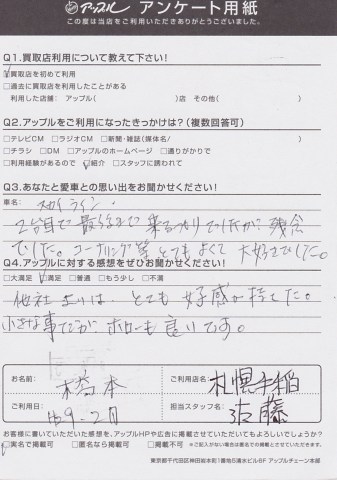 アップル アンケート用紙
この度は当店をご利用いただきありがとうございました。
Q1.買取店利用について教えて下さい!
☑買取店を初めて利用
□過去に買取店を利用したことがある
利用した店舗: アップル( )店 その他( )
Q2.アップルをご利用になったきっかけは?(複数回答可)
□テレビCM □ラジオCM □新聞・雑誌(媒体名/ )
□チラシ □DM □アップルのホームページ □通りがかりで
□利用経験があるので ☑紹介 □スタッフに誘われて
Q3.あなたと愛車との思い出をお聞かせください!
車名: スカイライン
2台目で最後まで乗るつもりでしたが残念
でした。コーナリング等とてもよくて大好きでした。
Q4.アップルに対する感想をぜひお聞かせください!
□大満足 ☑満足 □普通 □もう少し □不満
他社よりは とても好感が持てた。
小さな事だが、フォローも良いです。
お名前: 橋本
ご利用店名: 札幌手稲
ご利用日: H29-2月
担当スタッフ名: 佐藤
お客様に書いていただいた感想を、アップルHPや広告に掲載させていただいてもよろしいでしょうか?
☑実名で掲載可 □匿名なら掲載可 □掲載不可 ※ご記入がない場合は匿名での掲載とさせていただきます。
東京都千代田区神田岩本町1番地5清水ビル6F アップルチェーン本部